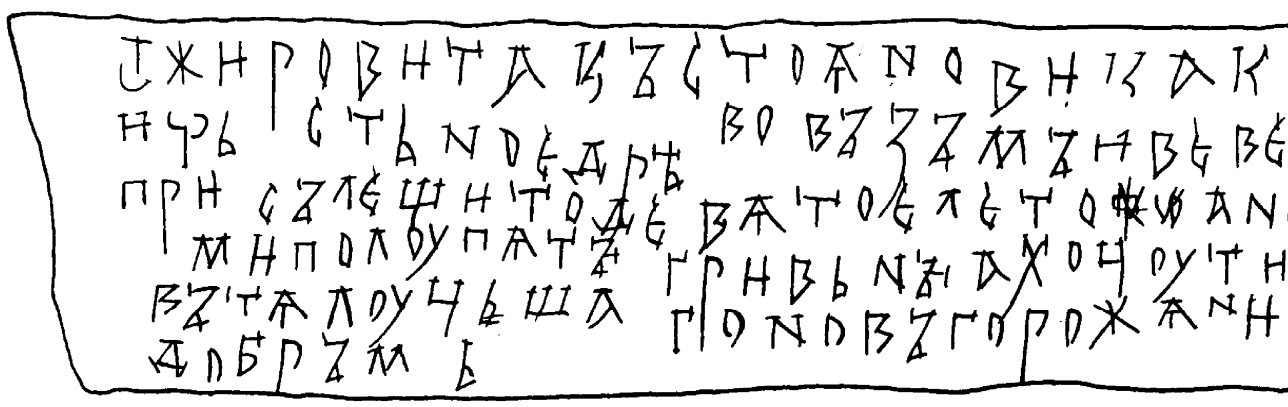 ѿ жировита къ стоѧнови как
и чрьстьное дрѣво възъмъ и веве
присълеши то девѧтое лето а н
ми полоу пѧтъ гривьнъı а хоцоу ти
въ тѧ лоуцьша го новъгорожѧни
добръмь